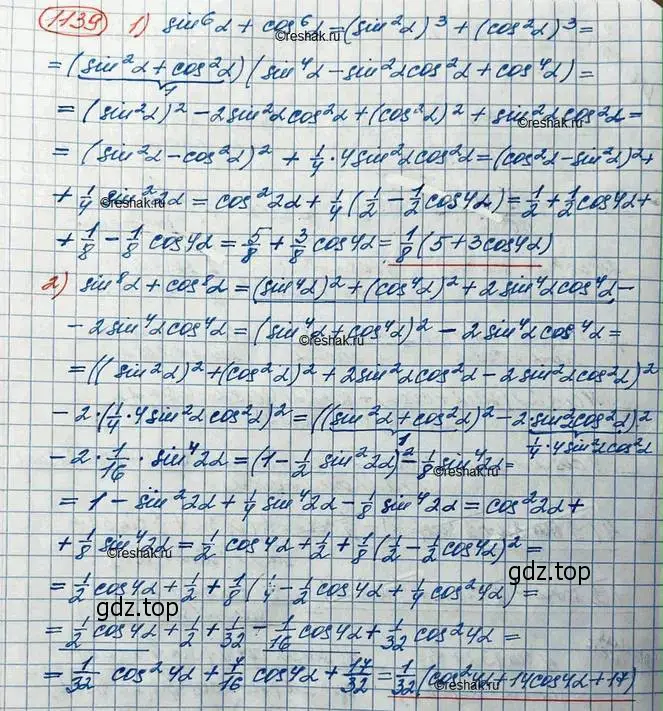 1139 1) sin⁶α + cos⁶α = (sin²α)³ + (cos²α)³ =
= (sin²α + cos²α)(sin⁴α - sin²αcos²α + cos⁴α) =
1
= (sin²α)² - 2sin²αcos²α + (cos²α)² + sin²αcos²α =
©reshak.ru
= (sin²α - cos²α)² + 1/4 · 4sin²αcos²α = (cos²α - sin²α)² +
+ 1/4 sin²2α = cos²2α + 1/4 (1/2 - 1/2 cos4α) = 1/2 + 1/2 cos4α +
+ 1/8 - 1/8 cos4α = 5/8 + 3/8 cos4α = 1/8 (5 + 3cos4α)
2) sin⁸α + cos⁸α = (sin⁴α)² + (cos⁴α)² + 2sin⁴αcos⁴α -
- 2sin⁴αcos⁴α = (sin⁴α + cos⁴α)² - 2sin⁴αcos⁴α =
©reshak.ru
= ((sin²α)² + (cos²α)² + 2sin²αcos²α - 2sin²αcos²α)²
- 2·(1/4 · 4sin²αcos²α)² = ((sin²α + cos²α)² - 2sin²αcos²α)²
1
1/4 · 4sin²αcos²α
- 2 · 1/16 · sin⁴2α = (1 - 1/2 sin²2α)² - 1/8 sin⁴2α =
= 1 - sin²2α + 1/4 sin⁴2α - 1/8 sin⁴2α = cos²2α +
+ 1/8 sin⁴2α = 1/2 cos4α + 1/2 + 1/8 (1/2 - 1/2 cos4α)² =
©reshak.ru
= 1/2 cos4α + 1/2 + 1/8 (1/4 - 1/2 cos4α + 1/4 cos²4α) =
gdz.top
gdz.top
= 1/2 cos4α + 1/2 + 1/32 - 1/16 cos4α + 1/32 cos²4α =
= 1/32 cos²4α + 7/16 cos4α + 17/32 = 1/32 (cos²4α + 14cos4α + 17)
©reshak.ru